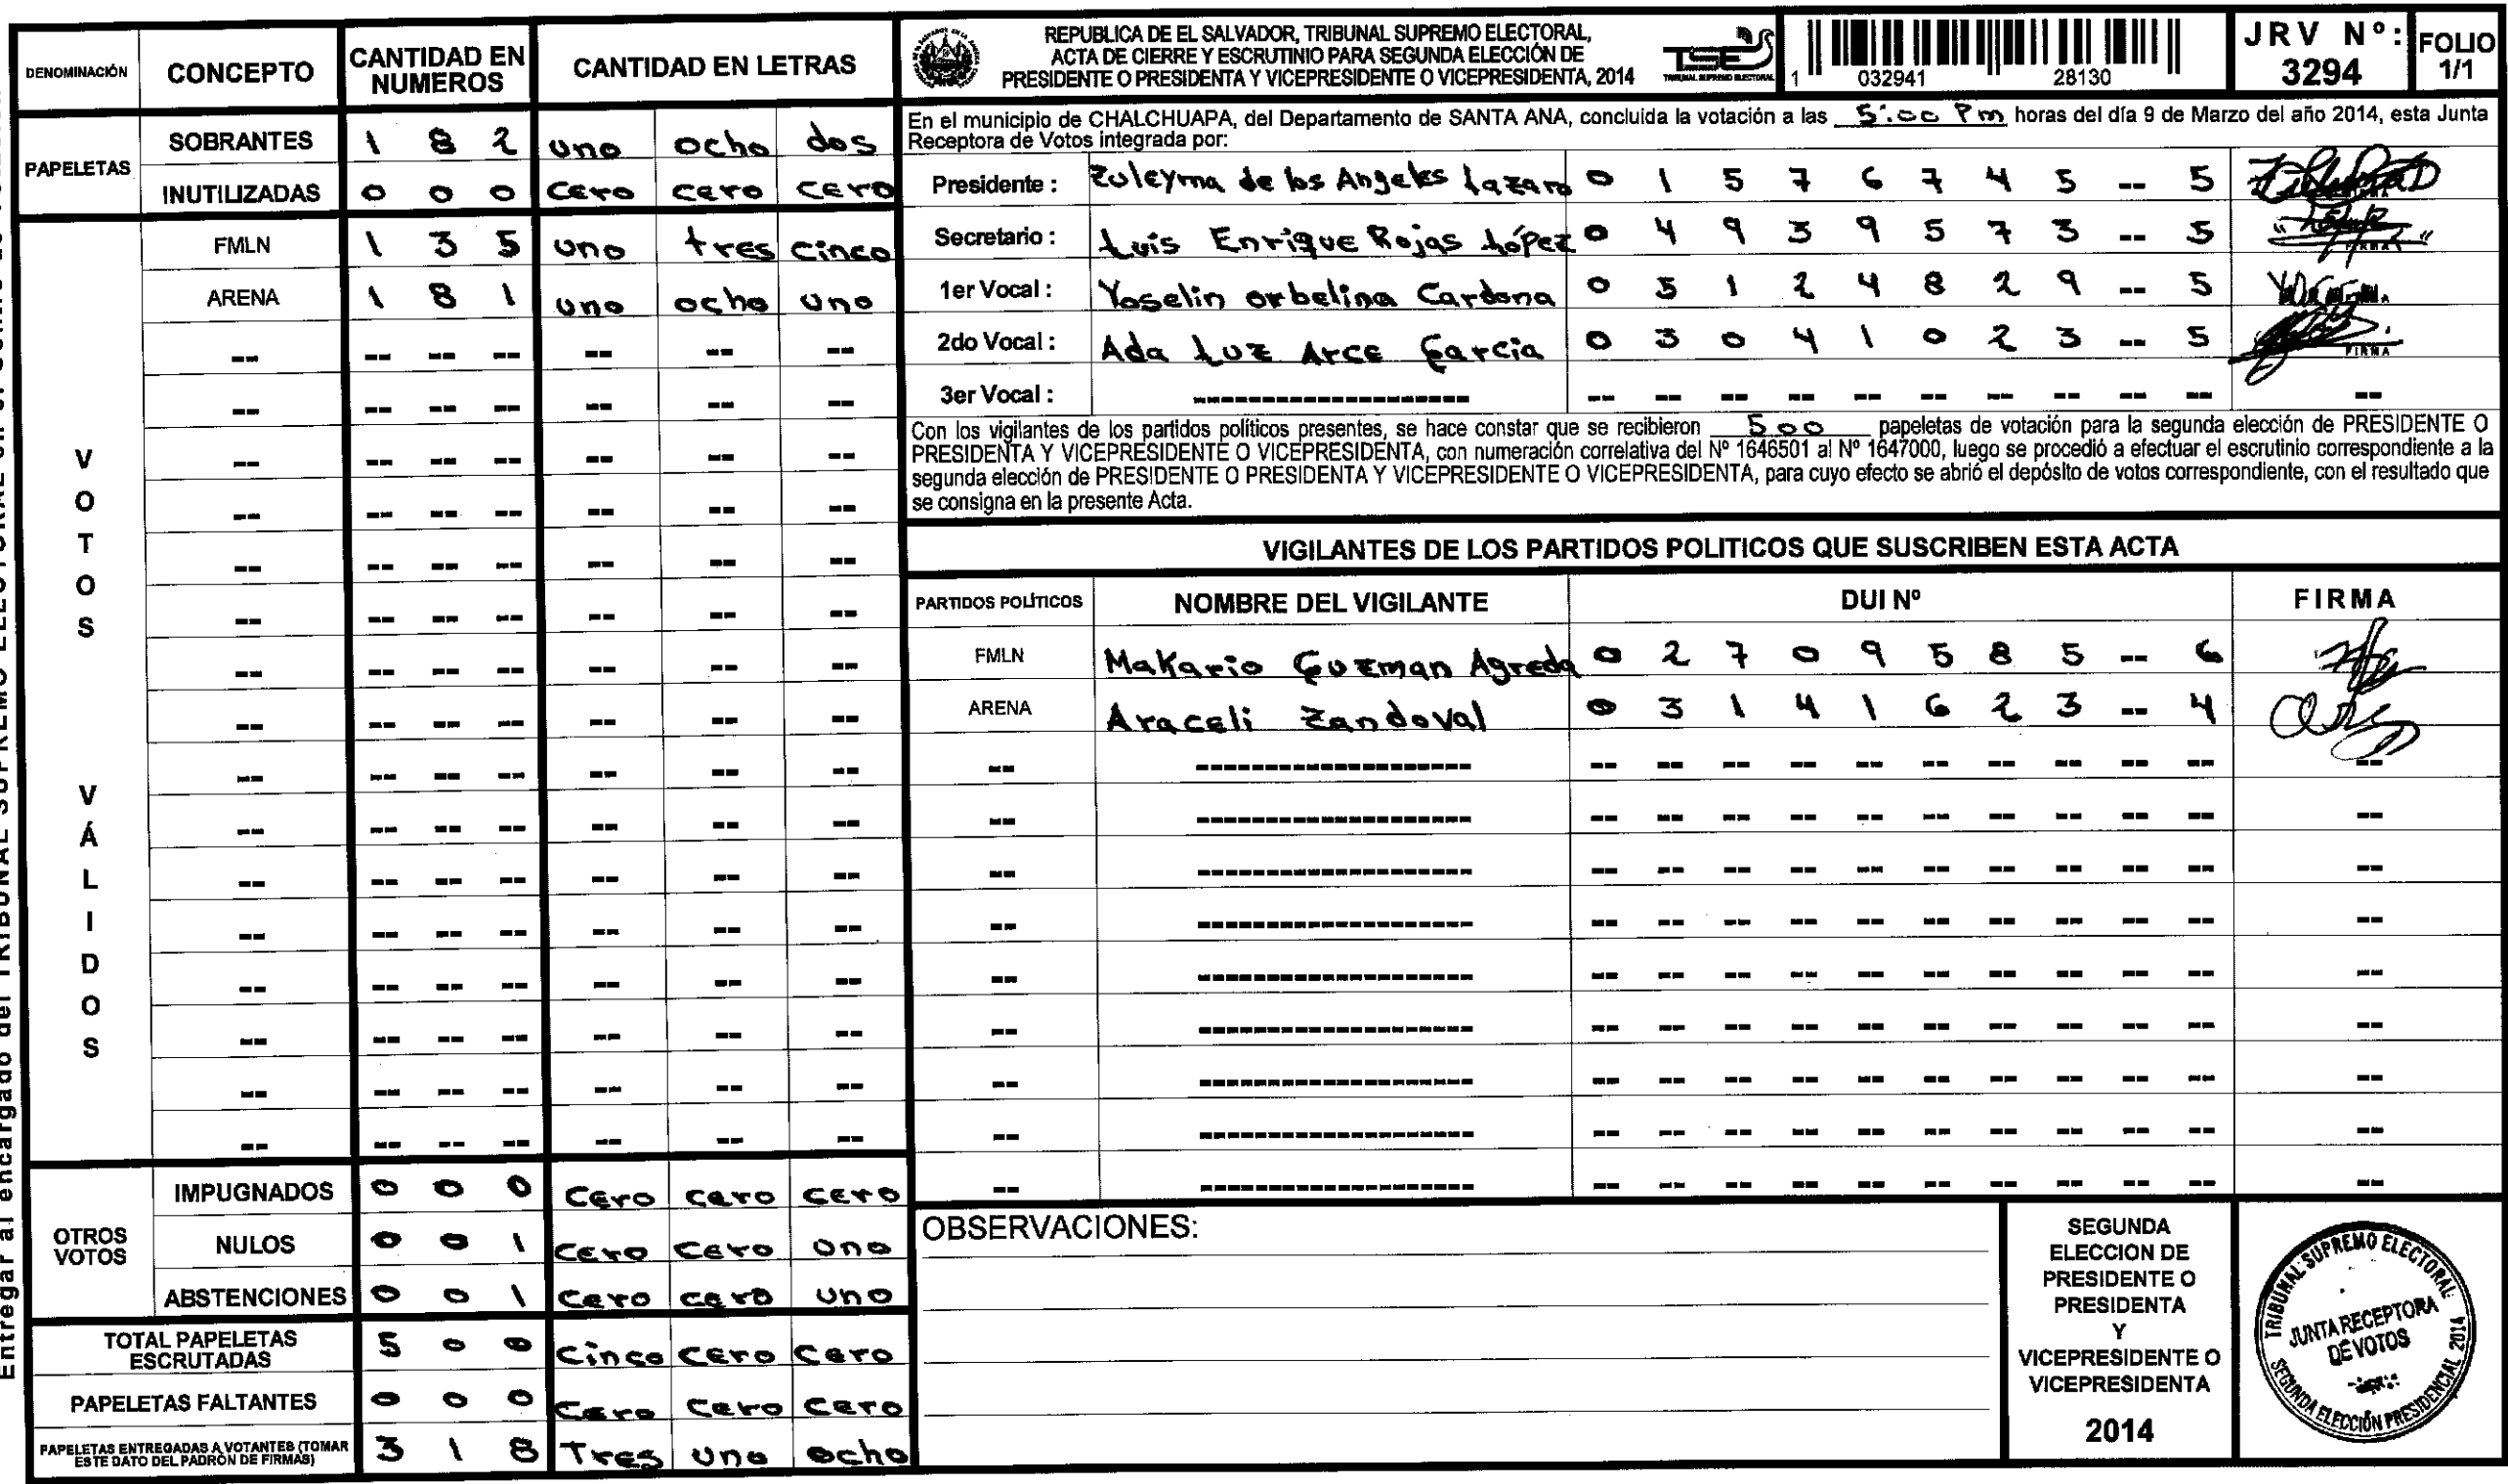 DENOMINACIÓN CONCEPTO CANTIDAD EN NUMEROS CANTIDAD EN LETRAS
PAPELETAS
SOBRANTES 1 8 2 uno ocho dos
INUTILIZADAS 0 0 0 cero cero cero
VOTOS VÁLIDOS
FMLN 1 3 5 uno tres cinco
ARENA 1 8 1 uno ocho uno
OTROS VOTOS
IMPUGNADOS 0 0 0 cero cero cero
NULOS 0 0 1 cero cero uno
ABSTENCIONES 0 0 1 cero cero uno
TOTAL PAPELETAS ESCRUTADAS 5 0 0 cinco cero cero
PAPELETAS FALTANTES 0 0 0 cero cero cero
PAPELETAS ENTREGADAS A VOTANTES (TOMAR ESTE DATO DEL PADRÓN DE FIRMAS) 3 1 8 Tres uno ocho
REPUBLICA DE EL SALVADOR, TRIBUNAL SUPREMO ELECTORAL,
ACTA DE CIERRE Y ESCRUTINIO PARA SEGUNDA ELECCIÓN DE
PRESIDENTE O PRESIDENTA Y VICEPRESIDENTE O VICEPRESIDENTA, 2014
TSE
TRIBUNAL SUPREMO ELECTORAL
1 032941 28130
JRV Nº: 3294
FOLIO 1/1
En el municipio de CHALCHUAPA, del Departamento de SANTA ANA, concluida la votación a las 5:00 Pm horas del día 9 de Marzo del año 2014, esta Junta
Receptora de Votos integrada por:
Presidente : Zuleyma de los Angeles Lazaro 0 1 5 7 6 7 4 5 -- 5
Secretario : Luis Enrique Rojas López 0 4 9 3 9 5 7 3 -- 5
1er Vocal : Yoselin orbelina Cardona 0 5 1 2 4 8 2 9 -- 5
2do Vocal : Ada Luz Arce Garcia 0 3 0 4 1 0 2 3 -- 5 FIRMA
3er Vocal :
Con los vigilantes de los partidos políticos presentes, se hace constar que se recibieron 500 papeletas de votación para la segunda elección de PRESIDENTE O
PRESIDENTA Y VICEPRESIDENTE O VICEPRESIDENTA, con numeración correlativa del Nº 1646501 al Nº 1647000, luego se procedió a efectuar el escrutinio correspondiente a la
segunda elección de PRESIDENTE O PRESIDENTA Y VICEPRESIDENTE O VICEPRESIDENTA, para cuyo efecto se abrió el depósito de votos correspondiente, con el resultado que
se consigna en la presente Acta.
VIGILANTES DE LOS PARTIDOS POLITICOS QUE SUSCRIBEN ESTA ACTA
PARTIDOS POLÍTICOS NOMBRE DEL VIGILANTE DUI Nº FIRMA
FMLN Makario Guzman Agreda 0 2 7 0 9 5 8 5 -- 6
ARENA Araceli Zandoval 0 3 1 4 1 6 2 3 -- 4
OBSERVACIONES:
SEGUNDA
ELECCION DE
PRESIDENTE O
PRESIDENTA
Y
VICEPRESIDENTE O
VICEPRESIDENTA
2014
TRIBUNAL SUPREMO ELECTORAL
JUNTA RECEPTORA
DE VOTOS
SEGUNDA ELECCIÓN PRESIDENCIAL 2014